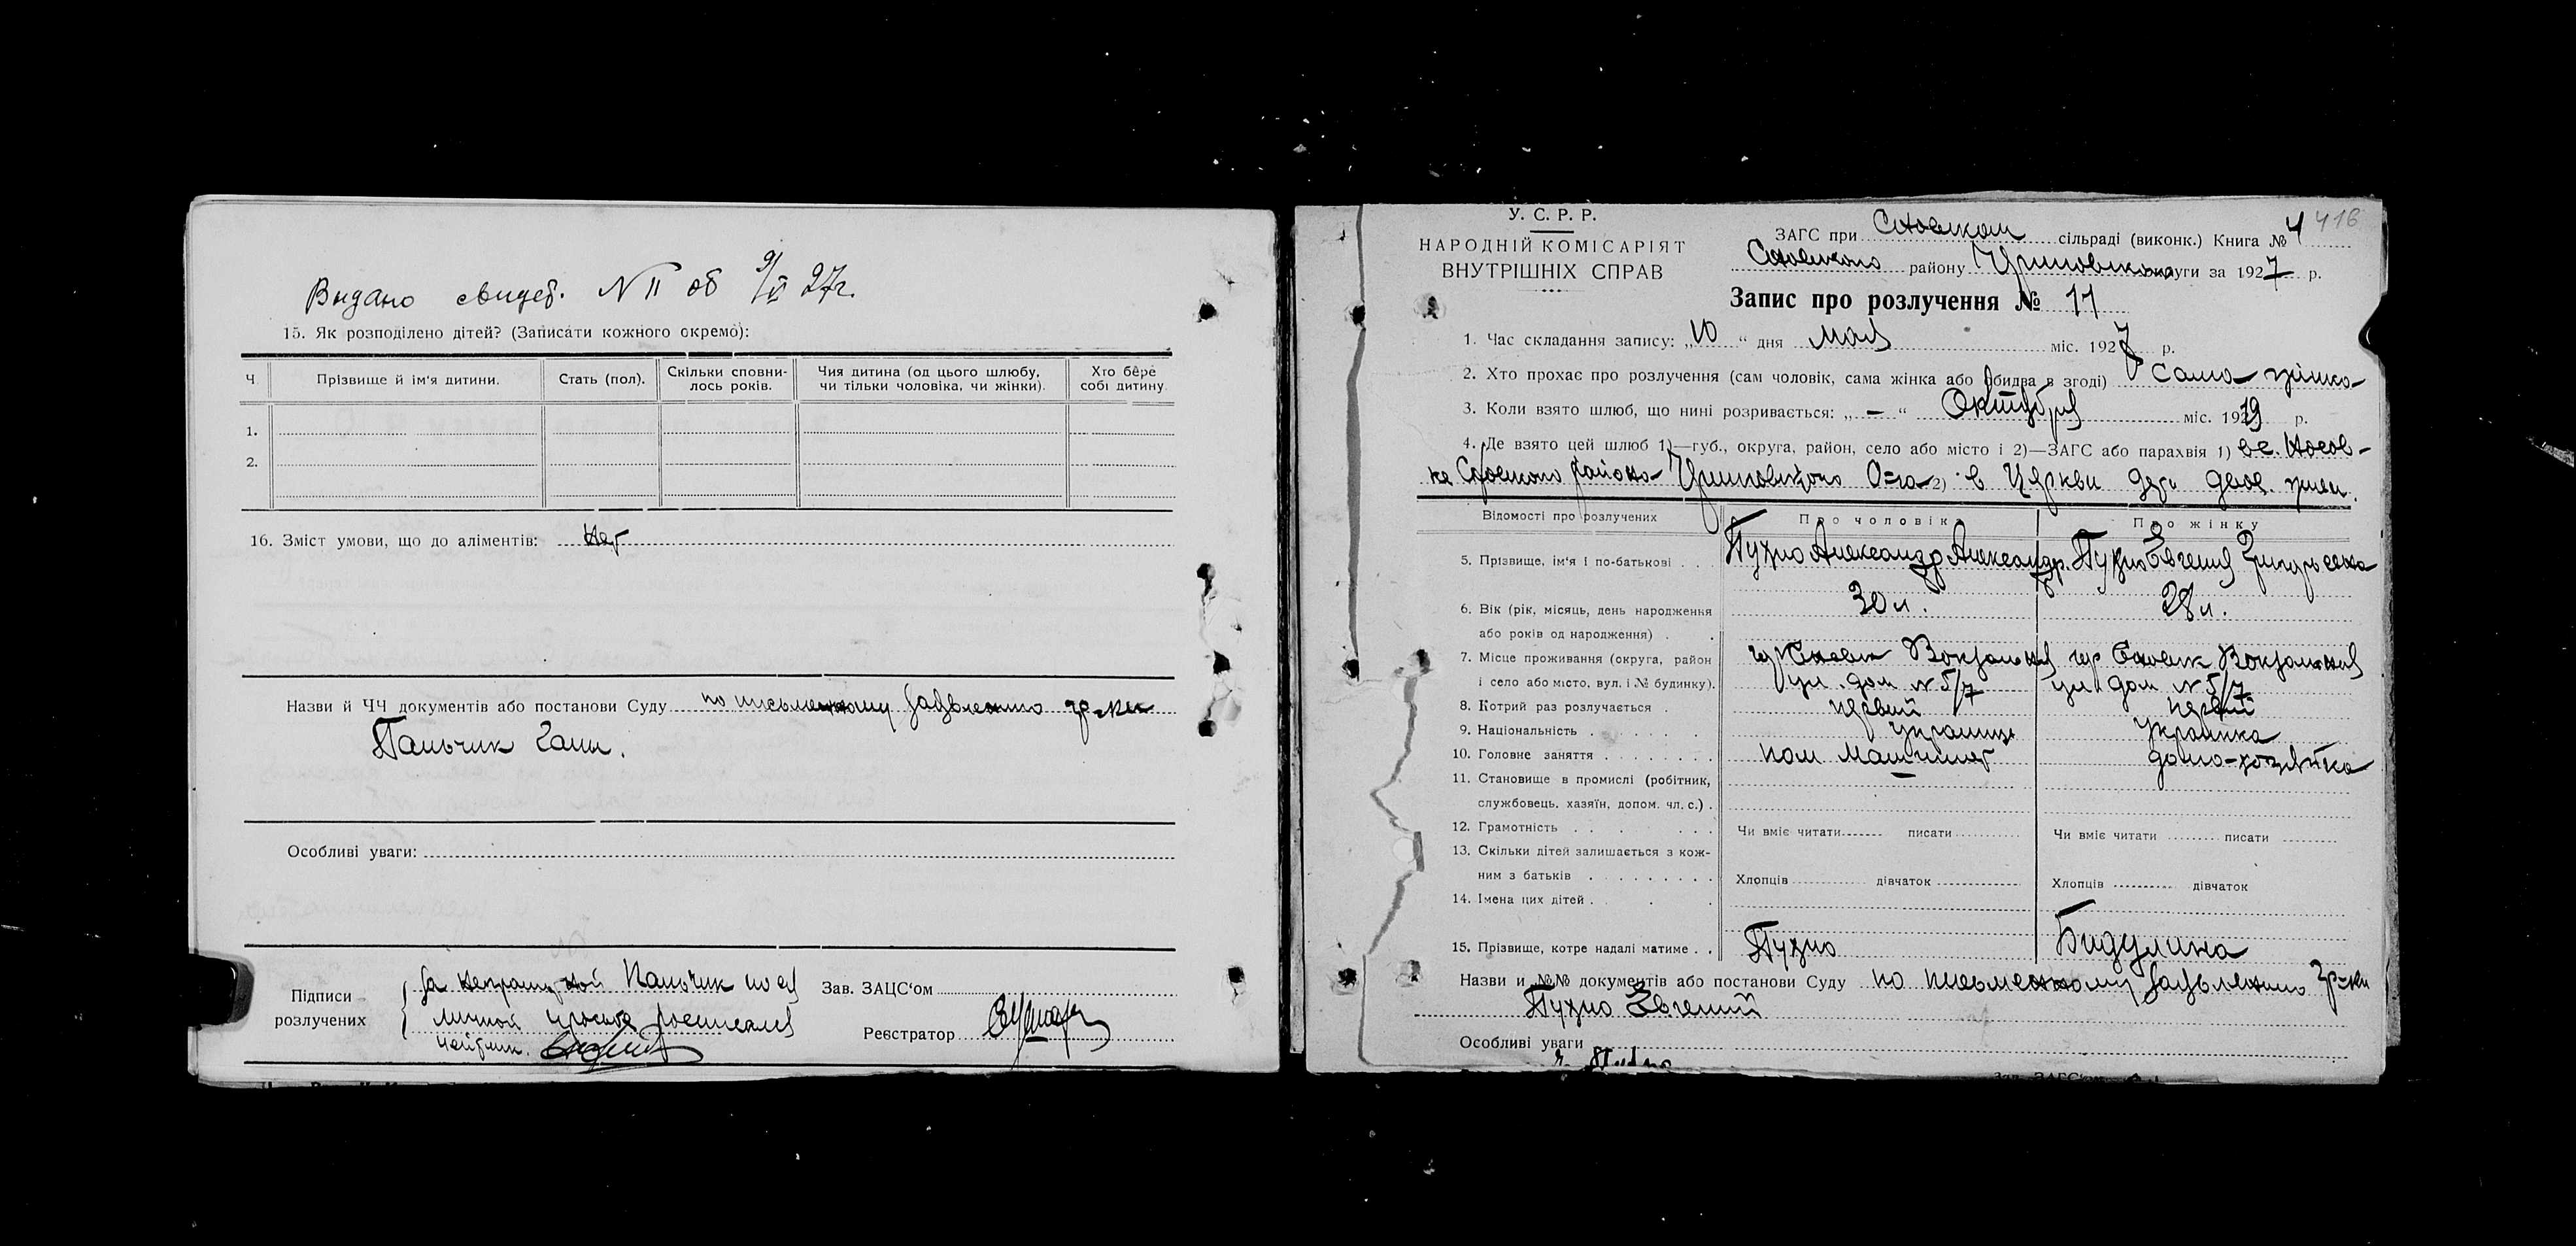 Видано свидет. № 11 об 9/V 27г.
15. Як розподілено дітей? (Записати кожного окремо):
Ч. Прізвище й ім'я дитини. Стать (пол). Скільки сповнилось років. Чия дитина (од цього шлюбу, чи тільки чоловіка, чи жінки). Хто бере собі дитину.
1.
2.
16. Зміст умови, що до аліментів: Нет
Назви й ЧЧ документів або постанови Суду по письменному заявлению гр-ки
Пальчик Ганы.
Особливі уваги:
Підписи розлучених
За неграмотной Пальчик по ея
личной просьбе росписался
Зав. ЗАЦС'ом
Реєстратор
У. С. Р. Р.
НАРОДНІЙ КОМІСАРІЯТ
ВНУТРІШНІХ СПРАВ
416
ЗАГС при Сновском сільраді (виконк.) Книга № 4
Сновского району округи за 1927 р.
Запис про розлучення № 11
1. Час складання запису: „10“ дня мая міс. 1927 р.
2. Хто прохає про розлучення (сам чоловік, сама жінка або обидва в згоді) Сама жінка
3. Коли взято шлюб, що нині розривається: „—“ Октября міс. 1919 р.
4. Де взято цей шлюб 1)—губ., округа, район, село або місто і 2)—ЗАГС або парахвія 1) в с. Носов-
ке Сновского района 2) в Церкви
Відомості про розлучених Про чоловіка Про жінку
5. Прізвище, ім'я і по-батькові . . . Пухно Александр Александр. Пухно Евгения
6. Вік (рік, місяць, день народження 30 л. 28 л.
або років од народження) . .
7. Місце проживання (округа, район гор Сновск Вокзальная гор Сновск Вокзальная
і село або місто, вул. і № будинку). ул. дом № 5/7 ул дом № 5/7
8. Котрий раз розлучається . первый первый
9. Національність . . . . . . украинец украинка
10. Головне заняття . . . . . . . пом машинист домо-хозяйка
11. Становище в промислі (робітник,
службовець, хазяїн, допом. чл. с.) .
12. Грамотність . . . . . . Чи вміє читати писати Чи вміє читати писати
13. Скільки дітей залишається з кож-
ним з батьків . . . . . . . . . Хлопців дівчаток Хлопців дівчаток
14. Імена цих дітей . . .
15. Прізвище, котре надалі матиме . . Пухно Бидулина
Назви и №№ документів або постанови Суду по письменному заявлению гр-ки
Пухно Евгении
Особливі уваги